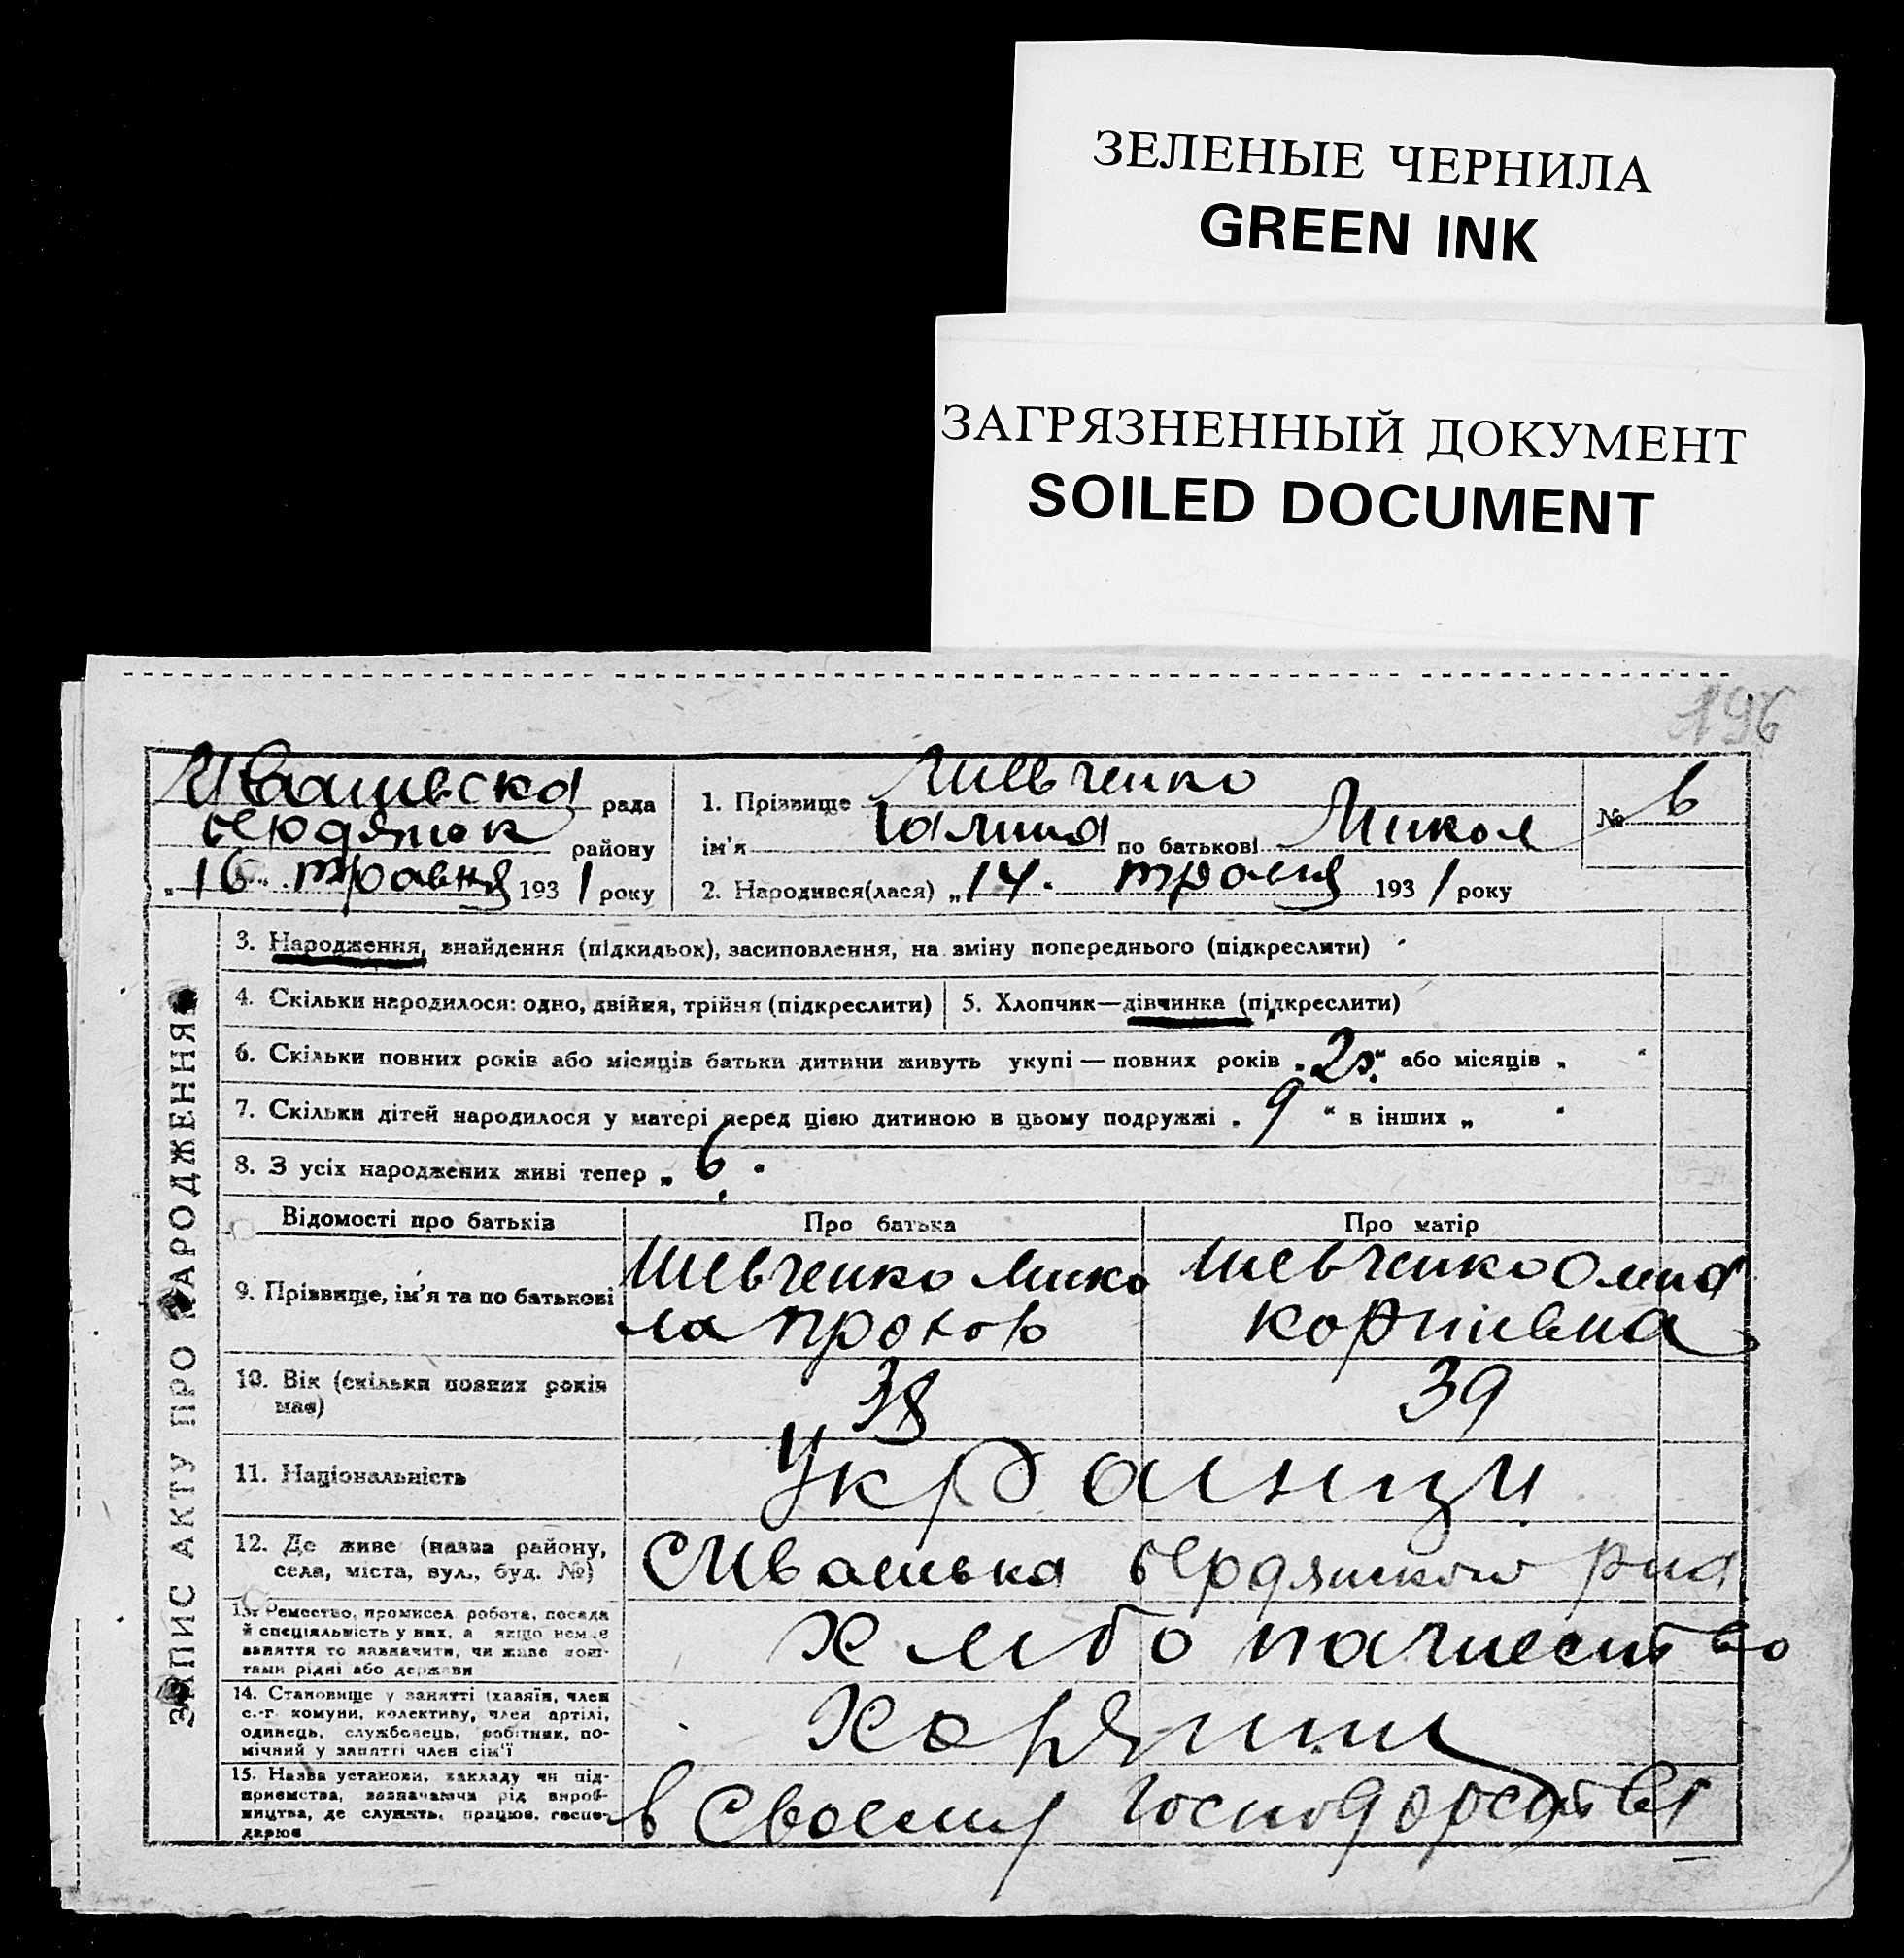 ЗЕЛЕНЫЕ ЧЕРНИЛА
GREEN INK
ЗАГРЯЗНЕННЫЙ ДОКУМЕНТ
SOILED DOCUMENT
196
рада
району
„16" травня 1931 року
1. Прізвище Шевченко
ім'я Галина по батькові Микол
№ 6
2. Народився(лася) „14" травня 1931 року
ЗАПИС АКТУ ПРО НАРОДЖЕННЯ
3. Народження, внайдення (підкидьок), засиновлення, на зміну попереднього (підкреслити)
4. Скільки народилося: одно, двійня, трійня (підкреслити)
5. Хлопчик—дівчинка (підкреслити)
6. Скільки повних років або місяців батьки дитини живуть укупі — повних років „ " або місяців „ "
7. Скільки дітей народилося у матері перед цією дитиною в цьому подружжі „9" в інших „ "
8. З усіх народжених живі тепер „6"
Відомості про батьків
Про батька
Про матір
9. Прізвище, ім'я та по батькові
Шевченко Мико
ла Прохор
Шевченко Олена
10. Вік (скільки повних років
має)
38
39
11. Національність
Українци
12. Де живе (назва району,
села, міста, вул., буд. №)
13. Ремество, промисел робота, посада
й спеціяльність у них, а якщо немає
заняття то зазначити, чи живе кош-
тами рідні або держави
Хлібопашество
14. Становище у занятті (хазяїн, член
с.-г. комуни, колективу, член артілі,
одинець, службовець, робітник, по-
мічний у занятті член сім'ї
15. Назва установи, закладу чи під-
приємства, зазначаючи рід вироб-
ництва, де служить, працює, госпо-
дарює
в своему господорстві